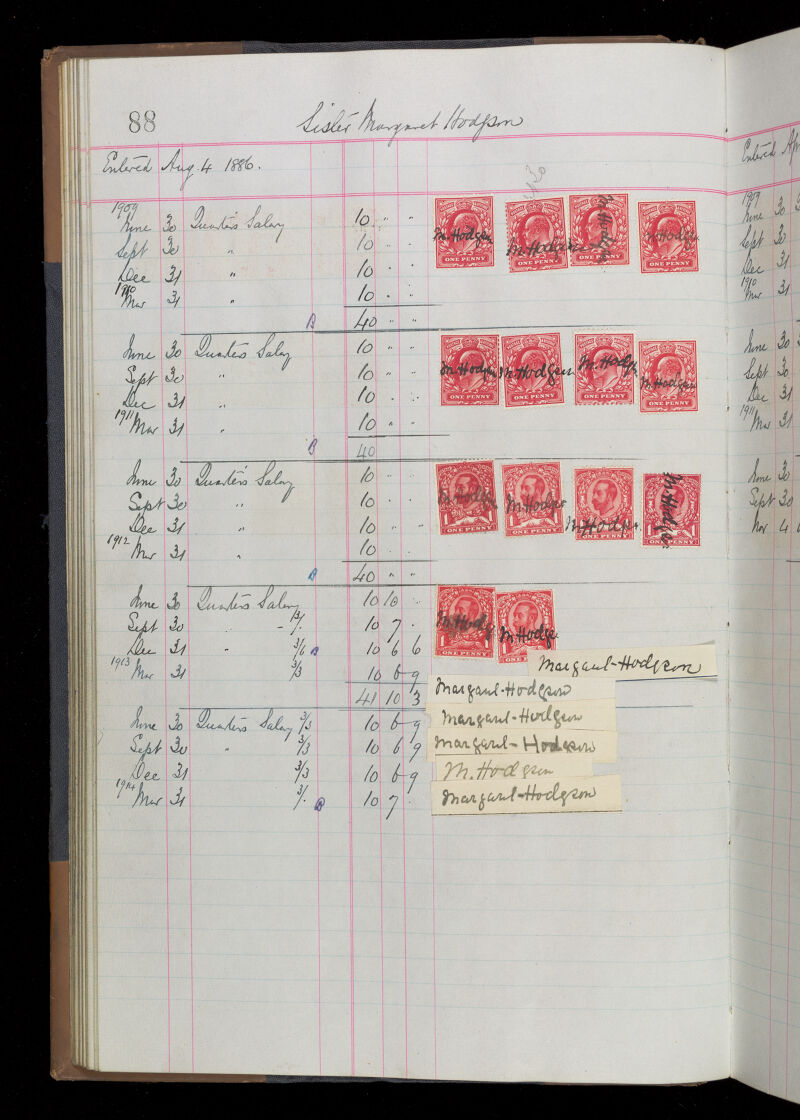 88
Sister Margaret Hodgson
Entered Aug. 4 1886.
1909
June 30 Quarter's Salary 10 " "
Sept 30 " 10 . .
Dec 31 " 10 . .
1910
Mar 31 " 10 . .
B 40 " "
June 30 Quarter's Salary 10 " "
Sept 30 " 10 " "
Dec 31 " 10 . .
1911
Mar 31 " 10 " .
B 40
June 30 Quarter's Salary 10 . .
Sept 30 " 10 . .
Dec 31 " 10 " "
1912
Mar 31 " 10 . .
B 40 " "
June 30 Quarter's Salary 10 10 .
Sept 30 " - 3/. 10 7 .
Dec 31 " 3/6 B 10 6 6
1913
Mar 31 3/3 10 6 9
41 10 3
June 30 Quarter's Salary 3/3 10 6 9
Sept 30 " 3/3 10 6 9
Dec 31 3/3 10 6 9
1914
Mar 31 3/. B 10 7 .
M. Hodgson M. Hodgson M. Hodgson M. Hodgson
ONE PENNY ONE PENNY ONE PENNY ONE PENNY
M. Hodgson M. Hodgson M. Hodgson M. Hodgson
ONE PENNY ONE PENNY ONE PENNY ONE PENNY
M. Hodgson M. Hodgson M. Hodgson M. Hodgson
ONE PENNY ONE PENNY ONE PENNY ONE PENNY
M. Hodgson M. Hodgson
ONE PENNY
Margaret-Hodgson
Margaret-Hodgson
Margaret-Hodgson
Margaret-Hodgson
M. Hodgson
Margaret-Hodgson
Entered Ap
1909
June 30
Sept 30
Dec 31
1910
Mar 31
June 30
Sept 30
Dec 31
1911
Mar 31
June 30
Sept 30
Nov 4